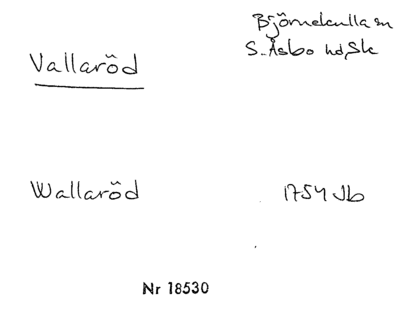 Björnekulla sn
Vallaröd
S. Åsbo hd, Sk
Wallaröd
1754 Jb
Nr 18530